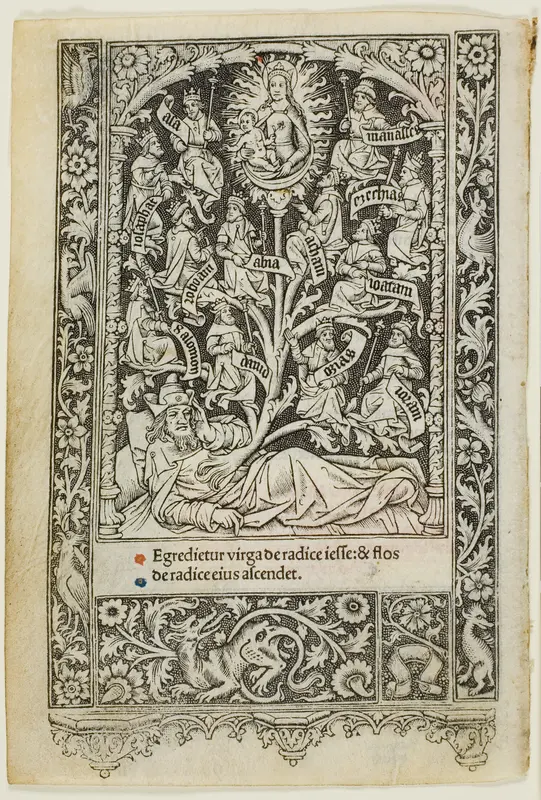 asa
manasses
iosaphat
ezechias
roboam
abia
acham
ioatam
Salomon
dauid
osias
ioram
Egredietur virga de radice iesse: & flos
de radice eius ascendet.